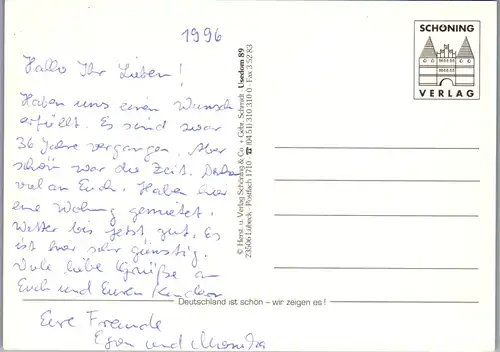 1996
Hallo Ihr Lieben!
Haben uns einen Wunsch
erfüllt. Es sind zwar
36 Jahre vergangen. Aber
schön war die Zeit. Denken
viel an Euch. Haben hier
eine Wohnung gemietet.
Wetter bis jetzt gut. Es
ist hier sehr günstig.
Viele liebe Grüße an
Euch und Euren Kindern
Eure Freunde
Egon und Monika
© Herst. u. Verlag Schöning & Co. · Gebr. Schmidt · Usedom 89
23506 Lübeck · Postfach 1710 · ☎ (04 51) 310 310 0 · Fax 3 52 83
SCHÖNING
VERLAG
Deutschland ist schön – wir zeigen es!